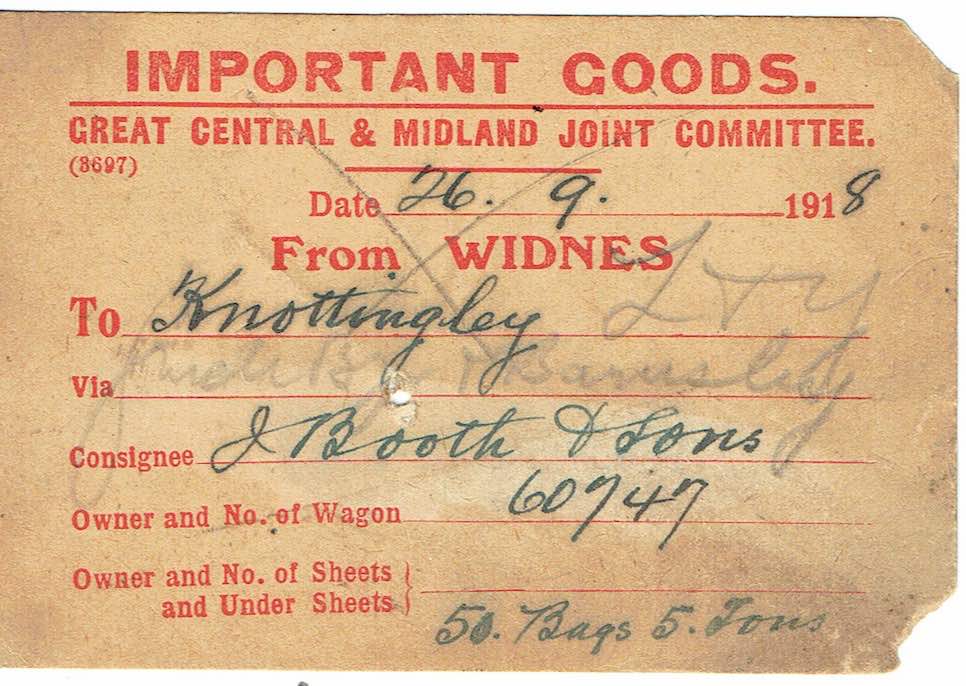 IMPORTANT GOODS.
GREAT CENTRAL & MIDLAND JOINT COMMITTEE.
(3697)
Date 26. 9. 1918
From WIDNES
L & Y
To Knottingley
Via & Barnsley
Consignee J Booth & Sons
Owner and No. of Wagon 60747
Owner and No. of Sheets
and Under Sheets
50. Bags 5. Tons